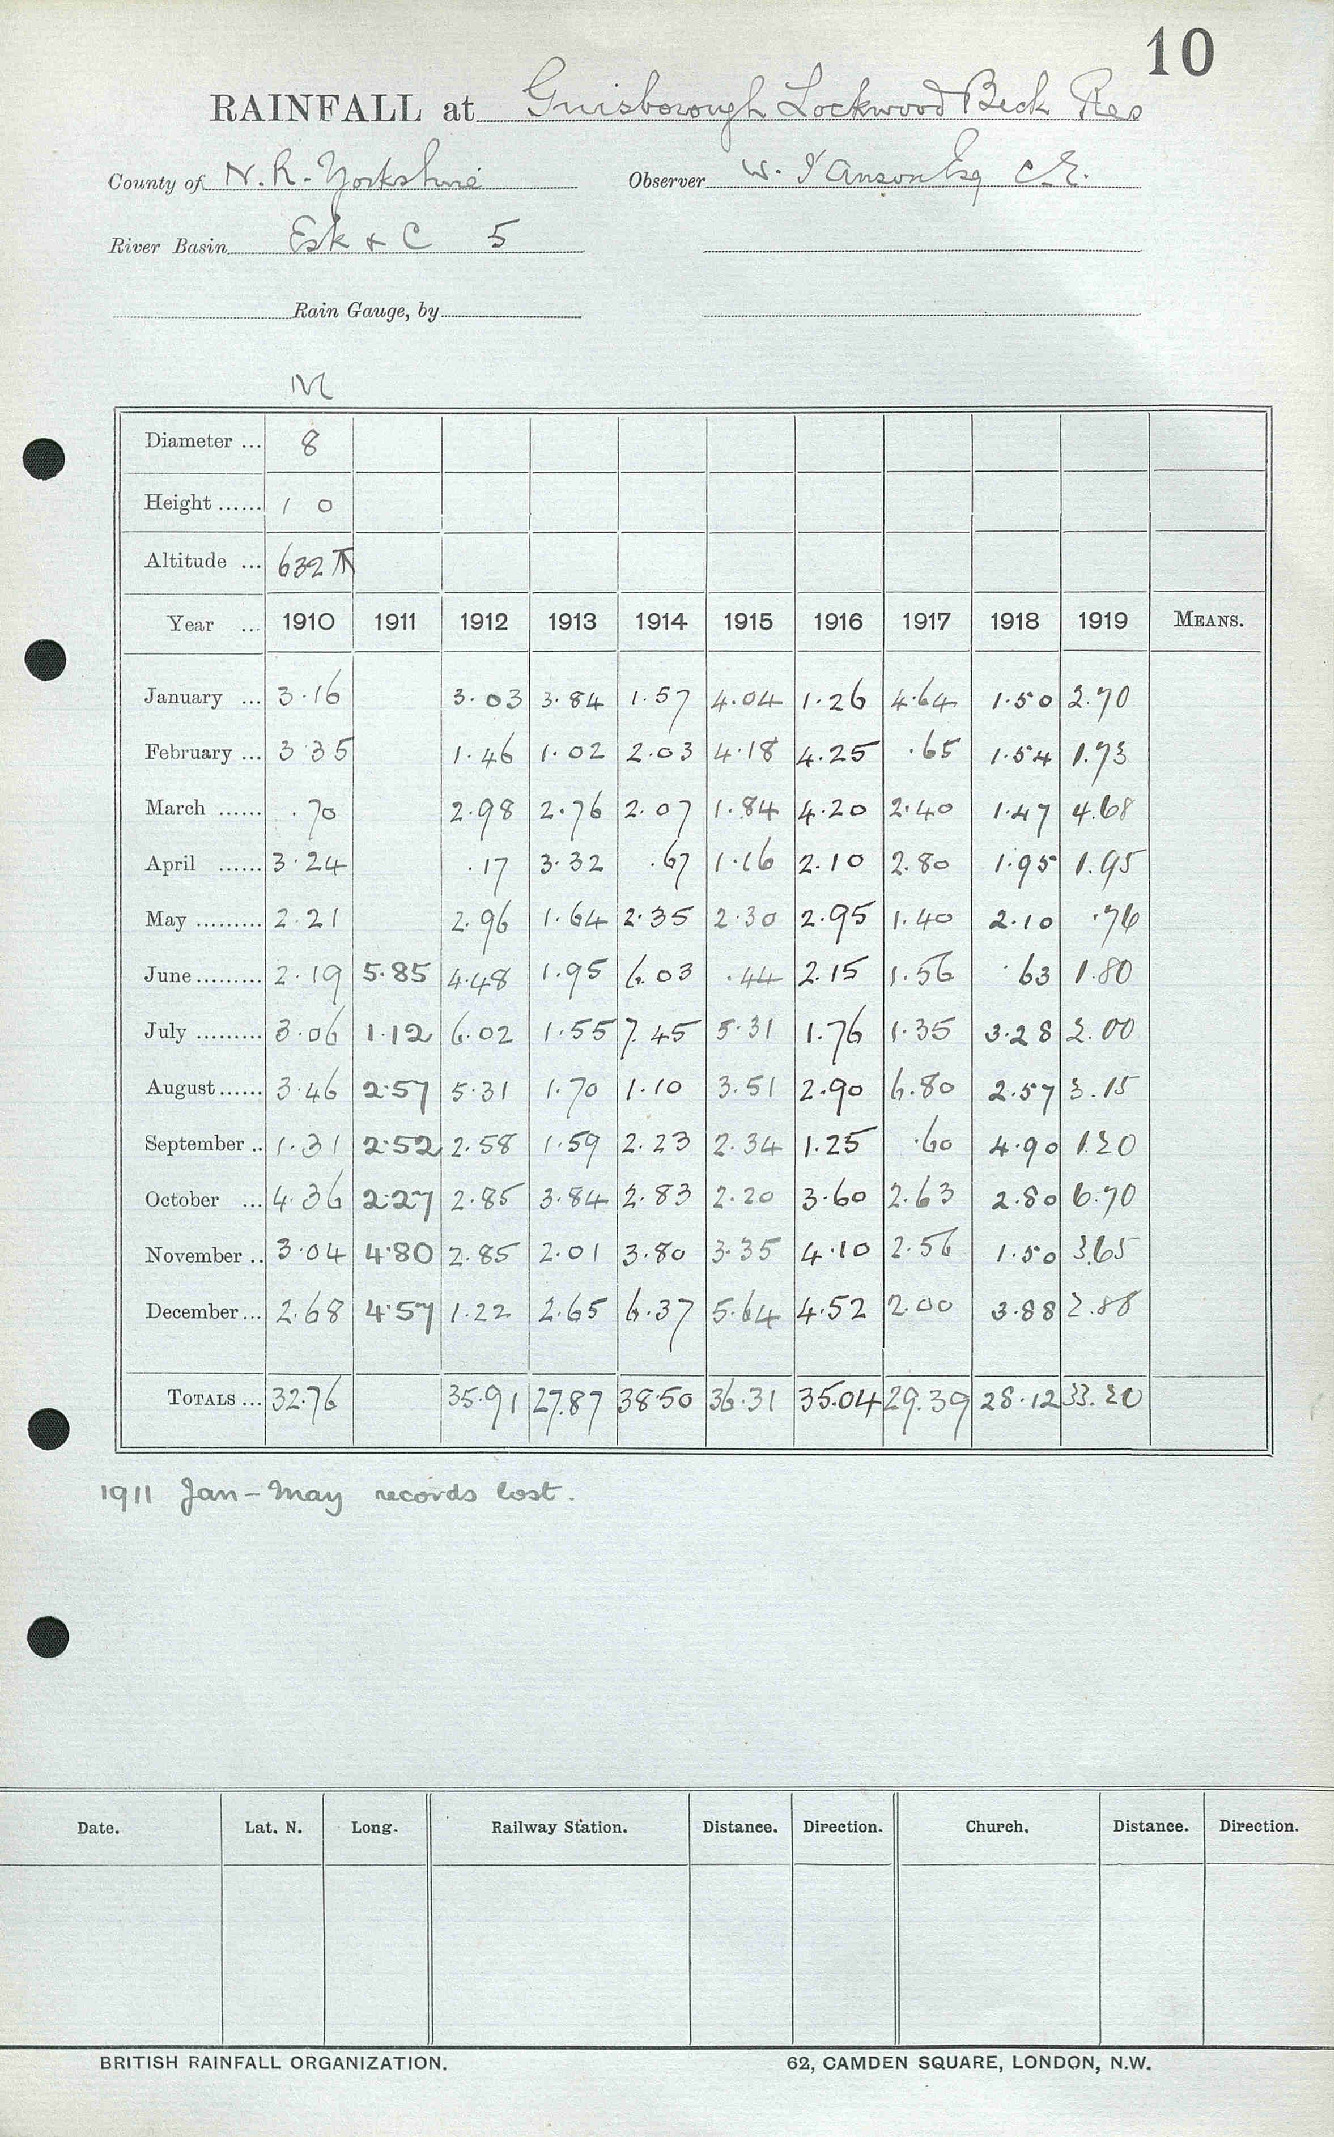 10
RAINFALL at Guisborough Lockwood Beck Res
County of N.R. Yorkshire Observer W. I'Anson Esq C.E.
River Basin Esk & C 5
Rain Gauge, by
M
Diameter ... 8
Height ...... 1 0
Altitude ... 632 T
Year ... 1910 1911 1912 1913 1914 1915 1916 1917 1918 1919 MEANS.
January ... 3.16 3.03 3.84 1.57 4.04 1.26 4.64 1.50 2.70
February ... 3.35 1.46 1.02 2.03 4.18 4.25 .65 1.54 1.73
March ...... .70 2.98 2.76 2.07 1.84 4.20 2.40 1.47 4.68
April ...... 3.24 .17 3.32 .67 1.16 2.10 2.80 1.95 1.95
May ......... 2.21 2.96 1.64 2.35 2.30 2.95 1.40 2.10 .76
June ......... 2.19 5.85 4.48 1.95 6.03 .44 2.15 1.56 .63 1.80
July ......... 3.06 1.12 6.02 1.55 7.45 5.31 1.76 1.35 3.28 2.00
August ...... 3.46 2.57 5.31 1.70 1.10 3.51 2.90 6.80 2.57 3.15
September .. 1.31 2.52 2.58 1.59 2.23 2.34 1.25 .60 4.90 1.20
October ... 4.36 2.27 2.85 3.84 2.83 2.20 3.60 2.63 2.80 6.70
November .. 3.04 4.80 2.85 2.01 3.80 3.35 4.10 2.56 1.50 3.65
December ... 2.68 4.57 1.22 2.65 6.37 5.64 4.52 2.00 3.88 2.88
TOTALS ... 32.76 35.91 27.87 38.50 36.31 35.04 29.39 28.12 33.20
1911 Jan - May records lost.
Date. Lat. N. Long. Railway Station. Distance. Direction. Church. Distance. Direction.
BRITISH RAINFALL ORGANIZATION. 62, CAMDEN SQUARE, LONDON, N.W.